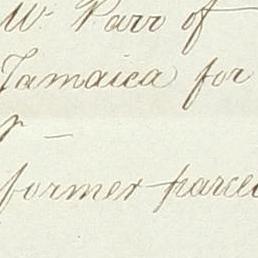 Mr Parr of
Jamaica for
former parcel